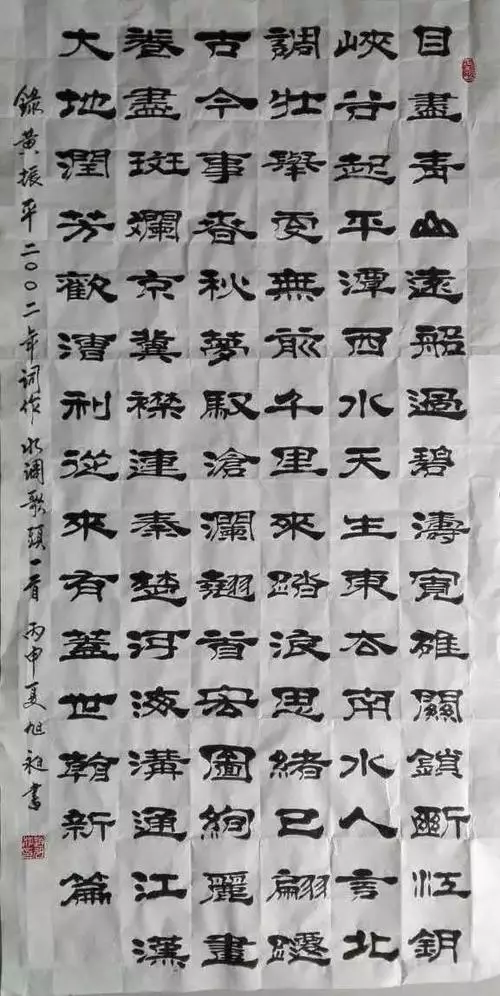 目盡青山遠船過碧濤寬雄關鎖斷江鈅
峽谷起平潭西水天生東去南水人言北
調壯舉更無前千里來踏浪思緒已翩躚
古今事春秋夢馭滄瀾翹首宏圖絢麗畫
卷盡斑斕京冀襟連秦楚河海溝通江漢
大地潤芳歡漕利從來有蓋世翰新篇
錄黃振平二〇〇二年词作水调歌頭一首丙申夏旭書